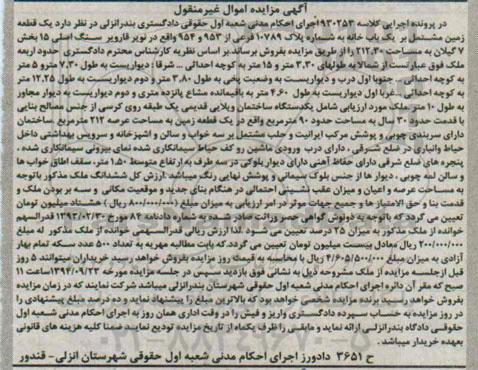 آگهی مزایده اموال غیرمنقول
در پرونده اجرایی کلاسه ۹۳۰۲۵۳اجرای احکام مدنی شعبه اول حقوقی دادگستری بندرانزلی در نظر دارد یک قطعه
زمین مشتمل بر یک باب خانه به شماره پلاک ۱۰۷۸۹ فرعی از ۹۵۳ و ۹۵۴ واقع در نویر قارویر سنگ اصلی ۱۵ بخش
۷ گیلان به مساحت ۲۱۲,۳۰ را از طریق مزایده بفروش برساند بر اساس نظریه کارشناس محترم دادگستری حدود اربعه
ملک فوق عبارتست از شمالا به طولهای ۳,۳۰ متر و ۱۵ متر به کوچه احداثی ... شرقا : دیواریست به طول ۷,۳۰ مترو ۵ متر
به کوچه احداثی . جنوبا اول درب و دیواریست به وضعیت پخی به طول ۳,۸۰ متر و دوم دیواریست به طول ۱۲,۲۵ متر
به کوچه احداثی . غربا اول دیواریست به طول ۴,۶۰ متر به باقیمانده مشاع پانزده متری و دوم دیواریست به دیوار مجاور
به طول ۱۰ متر ملک مورد ارزیابی شامل یکدستگاه ساختمان ویلایی قدیمی یک طبقه روی کرسی از جنس مصالح بنایی
با قدمت حدود ۳۰ سال به مساحت حدود ۹۰ مترمربع واقع در یک قطعه زمین به مساحت عرصه ۲۱۲ مترمربع . ساختمان
دارای سربندی چوبی و پوشش مرکب ایرانیت و حلب مشتمل بر سه خواب و سالن و اشپزخانه و سرویس بهداشتی داخل
حیاط وانباری در ضلع شرقی ، دارای درب ورودی ماشین رو کف حیاط سیمانکاری شده نمای بیرونی سیمانکاری شده ،
پنجره های ضلع شرقی دارای حفاظ آهنی دارای دیوار بلوکی در سه طرف به ارتفاع متوسط ۱,۵۰ متر، سقف اطاق خواب ها
و سالن لمه چوبی ، دیوار ها از جنس بلوک سیمانی و پوشش نهایی رنگ میباشد .ارزش کل ششدانگ ملک مذکور باتوجه
به مساحت عرصه و اعیان و میزان عقب نشینی احتمالی در هنگام بنای جدید و موقعیت مکانی و سه بر بودن ملک و
قدمت بنا و حق الامتیاز ها و جمیع جهات موثر در امر ارزیابی به میزان مبلغ (۸۰۰/۰۰۰/۰۰۰ ریال ) هشتاد میلیون تومان
تعیین می گردد که باتوجه به فتوتوش گواهی حصر وراثت صادر شده به شماره دادنامه ۸۴ مورخ ۱۳۹۳/۰۲/۳۰ قدرالسهم
خوانده از ملک مذکور به میزان ۲۵ درصد تعیین می شود .لذا ارزش ریالی قدرالسهم خوانده از ملک مذکور له مبلغ
۲۰۰/۰۰۰/۰۰۰ ریال معادل بیست میلیون تومان تعیین می گردد.که بابت مطالبه مهریه به تعداد ۵۰۰ عدد سکه تمام بهار
آزادی به میزان مبلغ ۴/۶۰۵/۵۰۰/۰۰۰ ریال با محاسبه به قیمت روز بمزایده بفروش خواهد رسید خریداران میتوانند ۵ روز
قبل ازجلسه مزایده از ملک مشروحه ذیل به نشانی فوق بازدید سپس در جلسه مزایده مورخه ۱۳۹۴/۰۹/۲۳ساعت ۱۱
صبح که مقر آن دائره اجرای احکام مدنی شعبه اول حقوقی شهرستان بندرانزلی میباشد شرکت نمایند که در زمان مزایده
بفروش خواهد رسید برنده مزایده شخصی خواهد بود که بالاترین مبلغ را پیشنهاد نماید و ده درصد مبلغ پیشنهادی را
در روز مزایده به حساب سپرده دادگستری واریز و فیش را در وقت اداری همان روز به اجرای احکام مدنی شعبه اول
حقوقی دادگاه بندرانزلی ارائه نماید و مابقی را ظرف یکماه از تاریخ مزایده تودیع نمایند ضمنا کلیه هزینه های قانونی
بعهده خریدار میباشد .
ح ۳۶۵۱ دادورز اجرای احکام مدنی شعبه اول حقوقی شهرستان انزلی- قندور